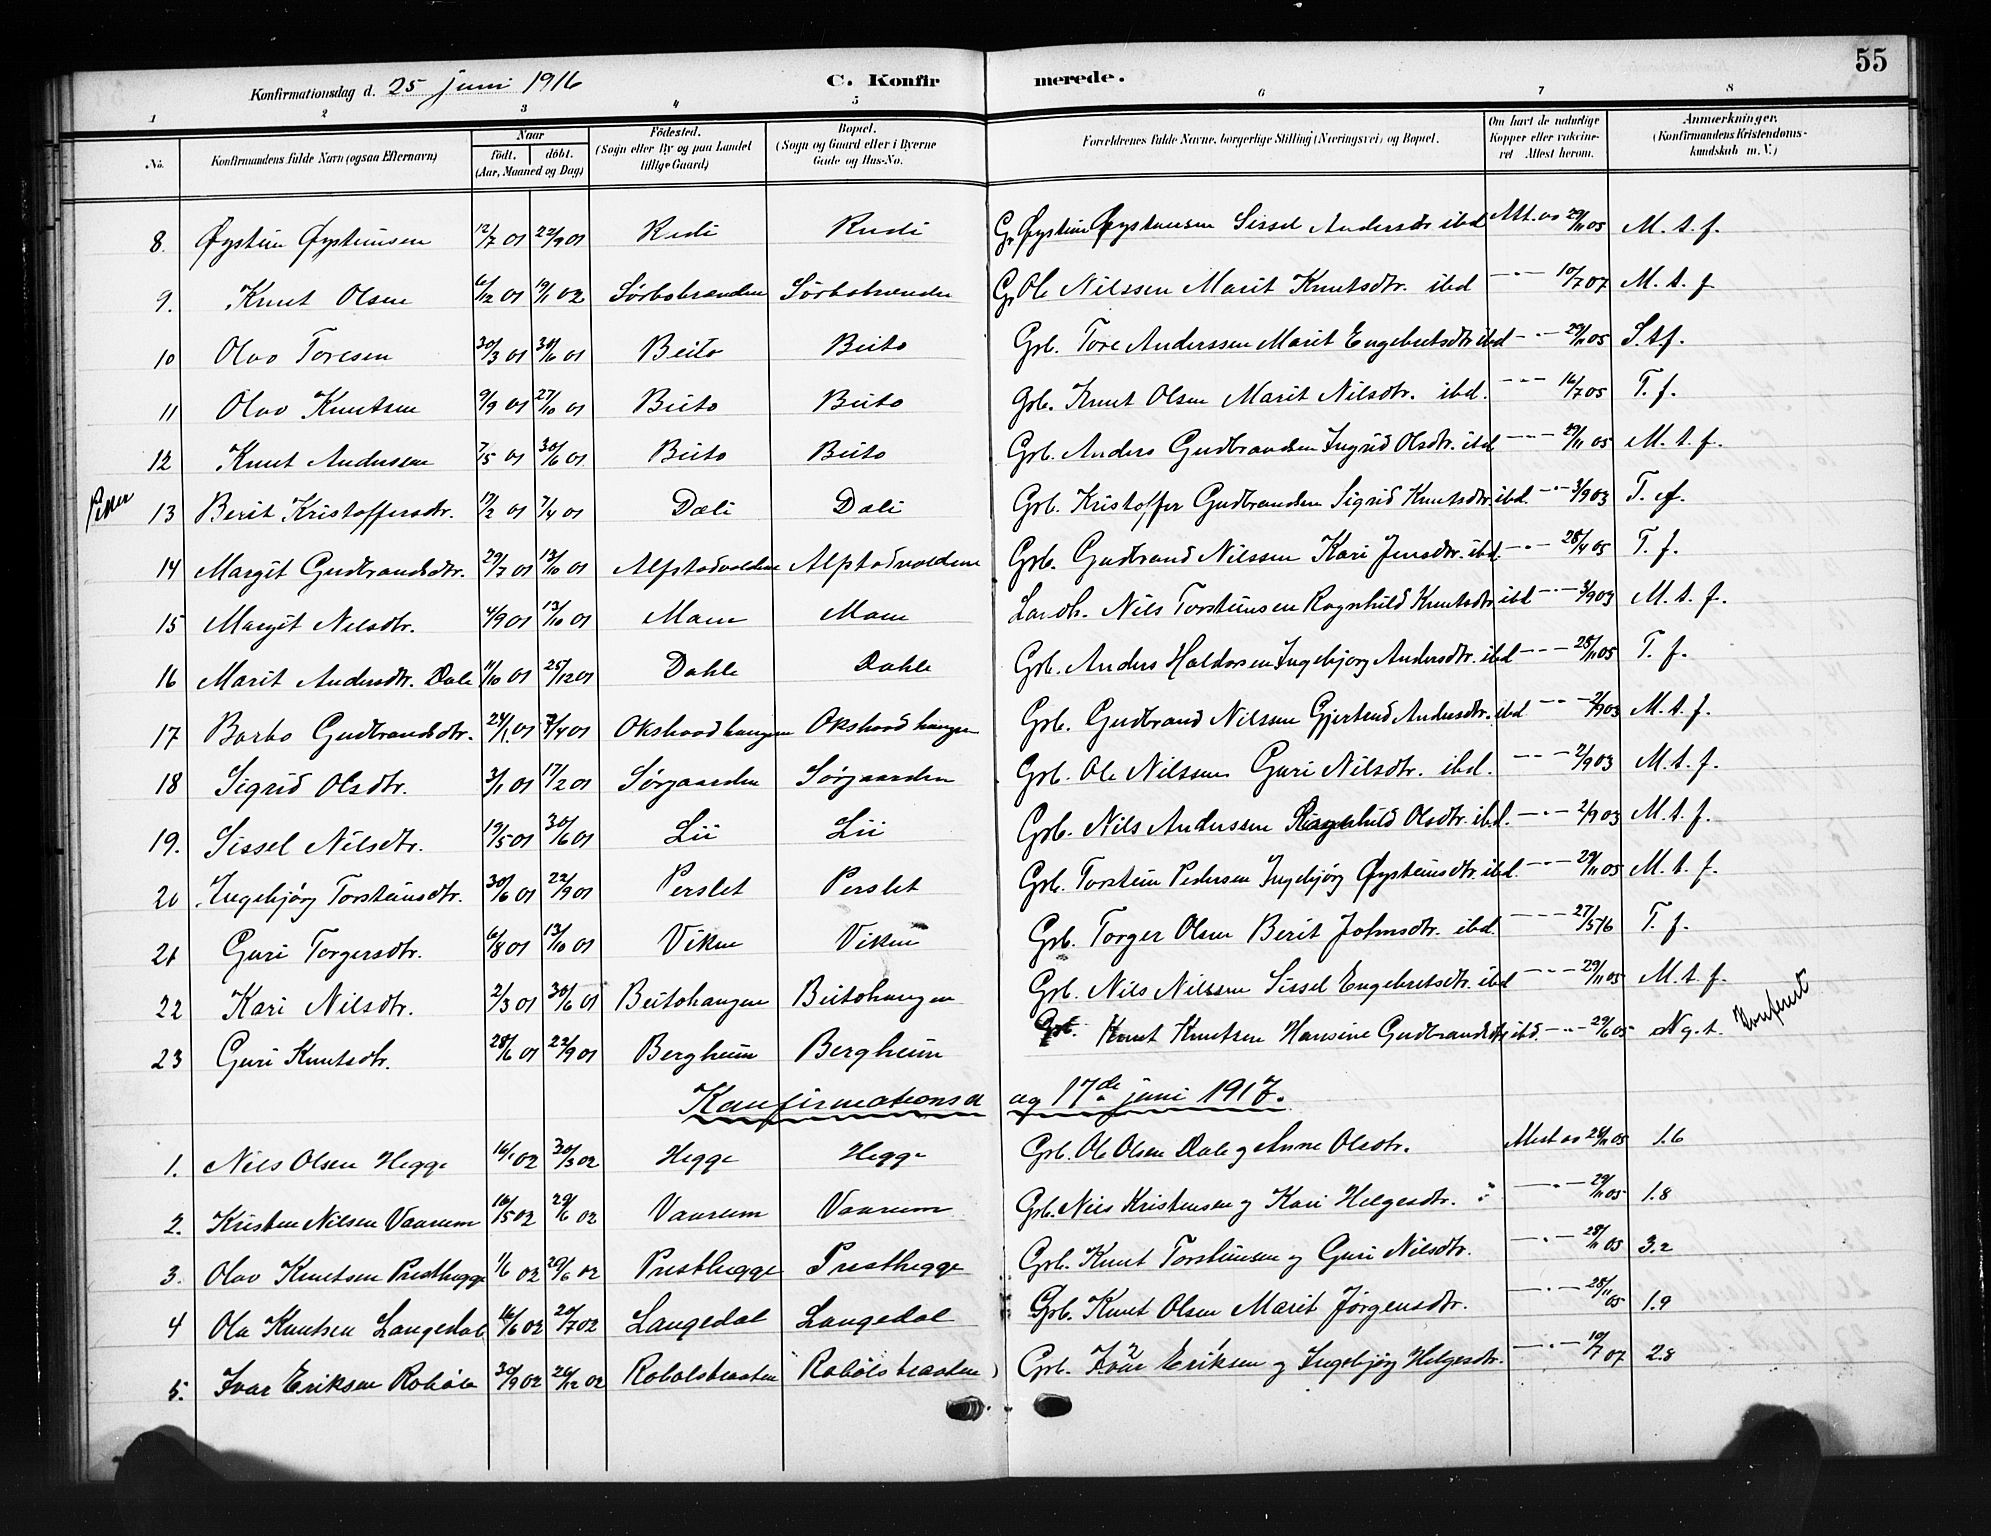 55
Konfirmationsdag d. 25 juni 1916 C. Konfirmerede.
1 2 3 4 5 6 7 8
No. Konfirmandens fulde Navn (ogsaa Efternavn) Naar født. døbt. (Aar, Maaned og Dag) Fødested. (Sogn eller By og paa Landet tillige Gaard) Bopæl. (Sogn og Gaard eller i Byerne Gade og Hus-No. Forældrenes fulde Navne, borgerlige Stilling (Næringsvei) og Bopæl. Om havt de naturlige Kopper eller vakcineret Attest herom. Anmærkninger. (Konfirmandens Kristendomskundskab m. V.)
8. Øystein Øysteinsen 12/7 01 22/9 01 Rudi Rudi Øystein Øysteinsen Sissel Andersdtr ibd Att. av 29/11 05 M. t. f.
9. Knut Olsen 6/12 01 19/1 02 Sørbøbraaden Sørbøbraaden Ole Nilssen Marit Knutsdtr. ibd —·— 10/7 07 M. t. f
10 Olav Toresen 30/3 01 30/6 01 Beito Beito Grb. Tore Anderssen Marit Engebretsdtr ibd —·— 29/11 05 S.t.f.
11 Olav Knutsen 9/9 01 27/10 01 Beito Beito Grb. Knut Olsen Marit Nilsdtr. ibd. —·— 16/7 05 T. f.
12 Knut Andersen 7/5 01 30/6 01 Beito Beito Grb. Anders Gudbrandsen Ingrid Olsdtr. ibd —·— 29/11 05 M. t. f.
13 Berit Kristoffersdtr. 17/2 01 7/4 01 Dali Dali Grb. Kristoffer Gudbrandsen Sigrid Knutsdtr. ibd. —·— 3/9 03 T. f.
14 Margit Gudbrandsdtr. 29/7 01 13/10 01 Alfstadvolden Alfstadvolden Grb. Gudbrand Nilssen Kari Jensdtr. ibd. —·— 28/4 05 T. f.
15 Margit Nilsdtr. 4/9 01 13/10 01 Moen Moen Landh. Nils Torsteinsen Ragnhild Knutsdtr ibd —·— 3/9 03 M. t. f.
16 Marit Andersdtr. Dale 11/10 01 25/12 01 Dahle Dahle Grb. Anders Haldorsen Ingebjorg Andersdtr. ibd —·— 28/11 05 T. f.
17 Barbo Gudbrandsdtr. 24/1 01 7/4 01 Okshovdhaugen Okshovdhaugen Grb. Gudbrand Nilssen Gjertrud Andersdtr. ibd —·— 2/9 03 M. t. f.
18 Sigrid Olsdtr. 3/1 01 17/2 01 Sørgaarden Sørgaarden Grb. Ole Nilssen Guri Nilsdtr. ibd. —·— 2/9 03 M. t. f.
19. Sissel Nilsdtr. 19/5 01 30/6 01 Lii Lii Grb. Nils Anderssen Ragnhild Olsdtr. ibd. —·— 2/9 03 M. t. f.
20 Ingebjørg Torsteinsdtr. 30/6 01 22/9 01 Perslet Perslet Grb. Torstein Pedersen Ingebjørg Øysteinsdtr. ibd. —·— 29/11 05 M. t. f.
21 Guri Torgersdtr. 6/8 01 13/10 01 Viken Viken Grb. Torger Olsen Berit Johnsdtr. ibd. —·— 27/5 16 T. f.
22 Kari Nilsdtr. 2/3 01 30/6 01 Beitohaugen Beitohaugen Grb. Nils Nilssen Sissel Engebretsdtr. ibd —·— 29/11 05 M. t. f.
23 Guri Knutsdtr. 28/6 01 22/9 01 Bergheim Bergheim Grb. Knut Knutsen Hansine Gudbrandsdtr ibd. —·— 29/6 05 Ng. t.
Konfirmationsdag 17de juni 1917.
1. Nils Olsen Hegge 16/1 02 30/3 02 Hegge Hegge Grb. Ole Olsen Dale og Anne Olsdtr. Attest av 28/11 05 1.6
2. Kristen Nilsen Vaarum 16/5 02 29/6 02 Vaarum Vaarum Grb. Nils Kristensen og Kari Helgesdtr. —·— 29/11 05 1.8
3. Olav Knutsen Presthegge 1/6 02 29/6 02 Presthegge Presthegge Grb. Knut Torsteinsen og Guri Nilsdtr. —·— 28/11 05 3.2
4 Ola Knutsen Langedal 16/6 02 20/7 02 Langedal Langedal Grb. Knut Olsen Marit Jørgensdtr. —·— 28/11 05 1.9
5. Ivar Eriksen Robøle 30/9 02 26/12 02 Robølsbraaten Robølsbraaten Grb. Ivar Eriksen og Ingebjørg Helgesdtr. —·— 10/7 07 2.8